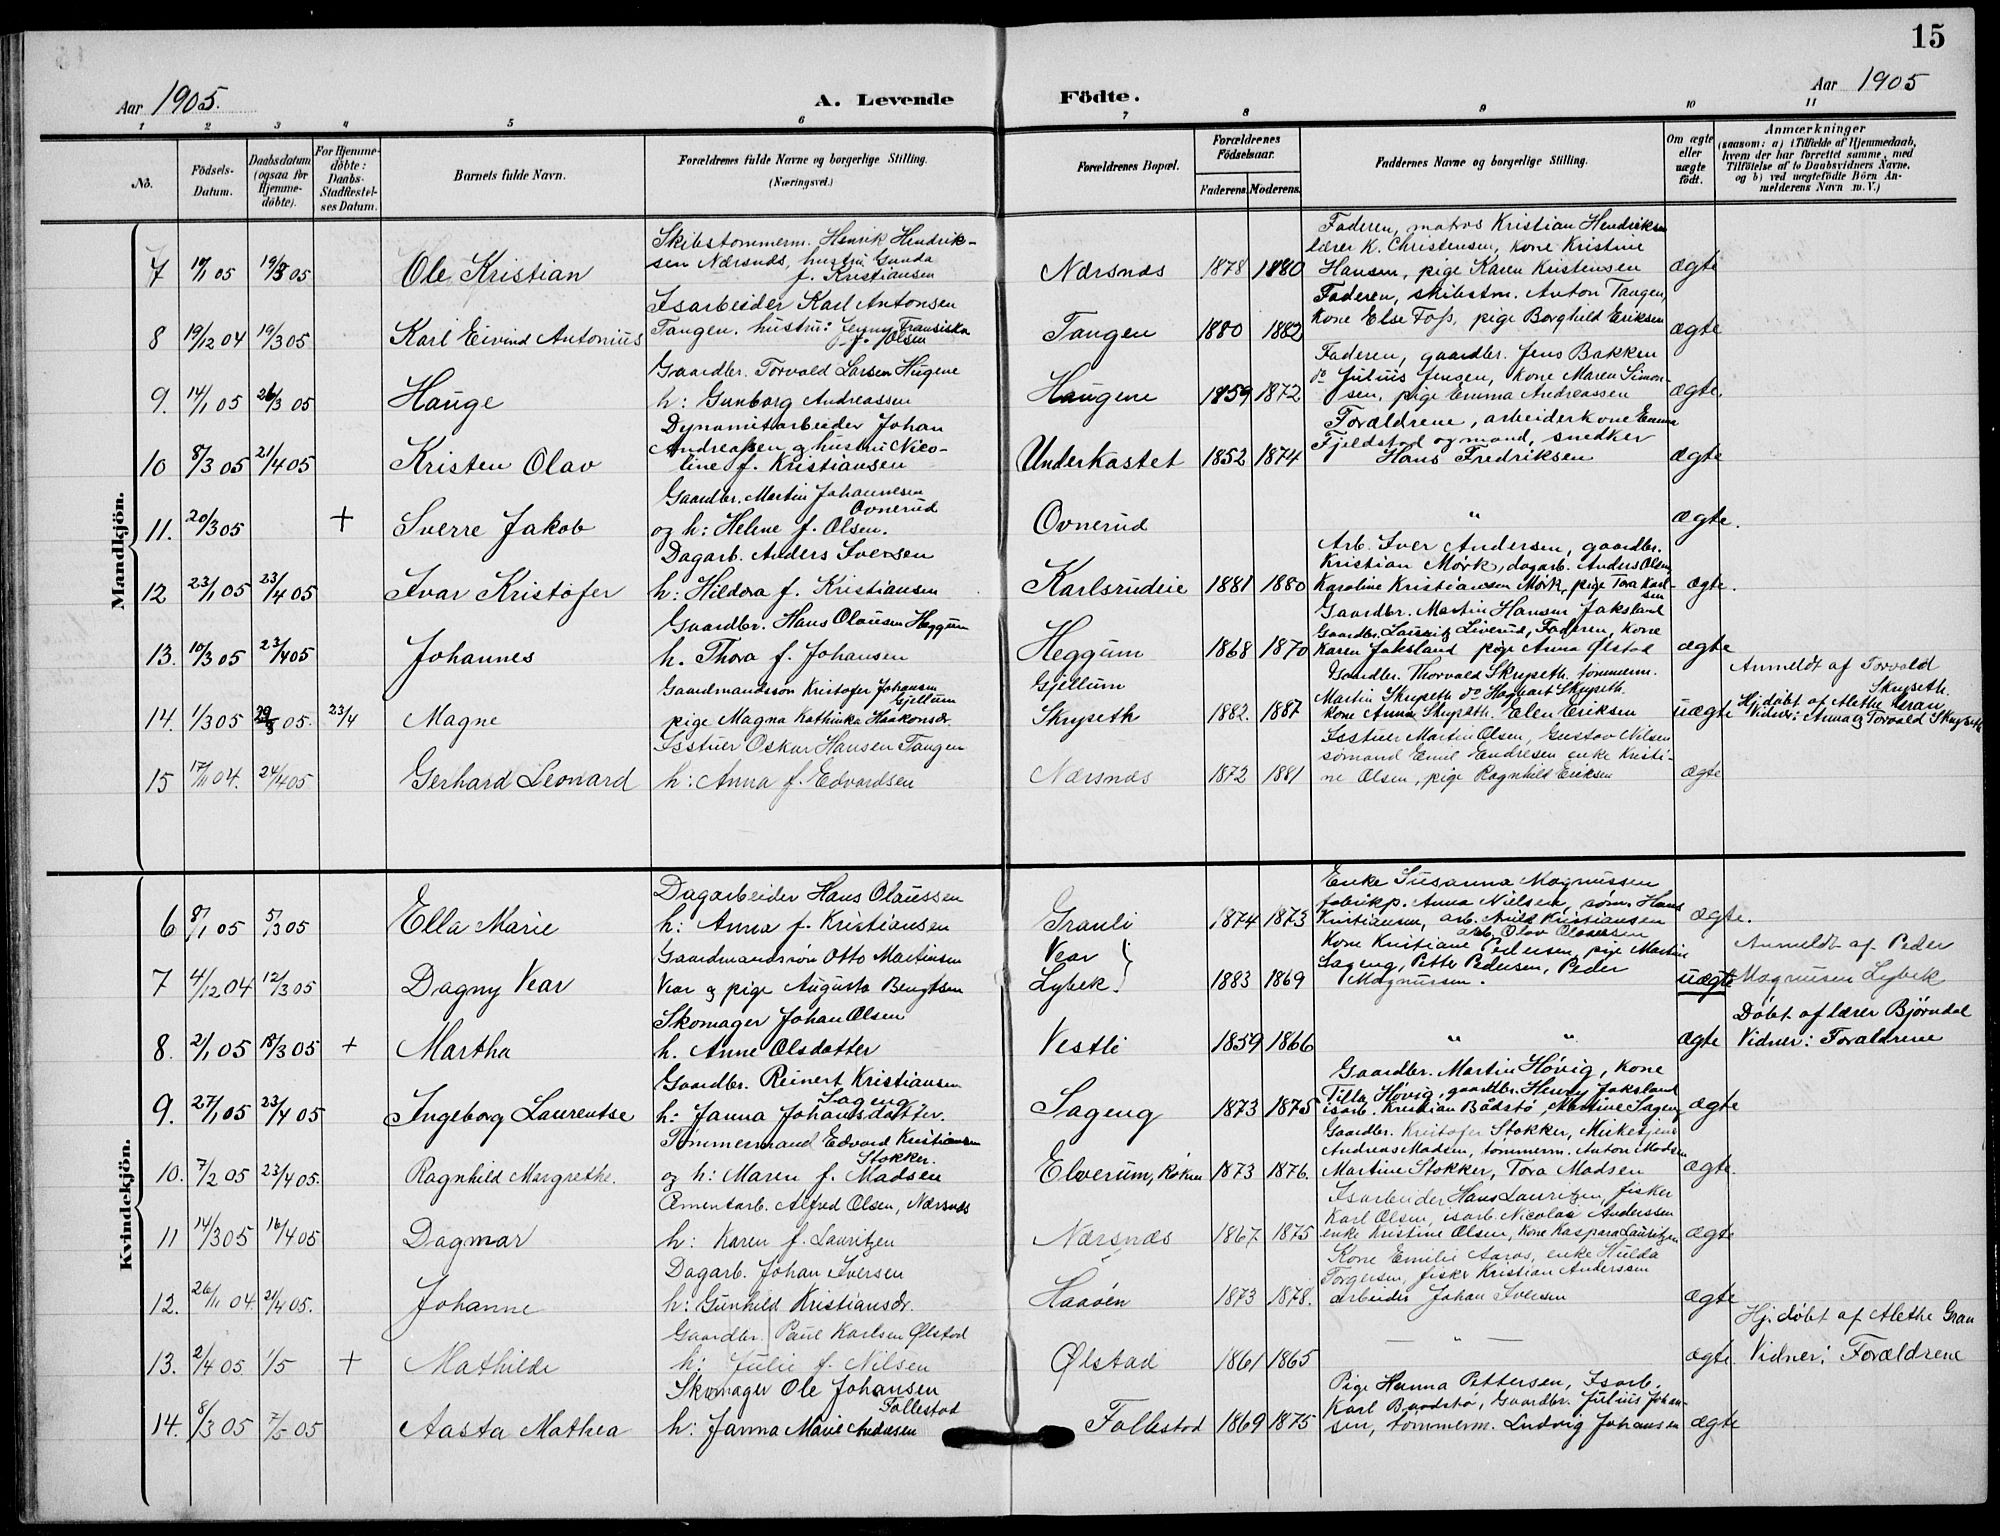 15
Aar 1905.
A. Levende Födte.
Aar 1905
1 2 3 4 5 6 7 8 9 10 11
No.
Födsels-Datum.
Daabsdatum (ogsaa for Hjemme-döbte).
For Hjemme-döbte: Daabs-Stadfæstel-ses Datum.
Barnets fulde Navn.
Forældrenes fulde Navne og borgerlige Stilling.
(Næringsvei.)
Forældrenes Bopæl.
Forældrenes Födselsaar.
Faderens. Moderens.
Faddernes Navne og borgerlige Stilling.
Om ægte eller uægte födt.
Anmærkninger
(saasom: a) i Tilfælde af Hjemmedaab, hvem der har forrettet samme, med Tilföielse af to Daabsvidners Navne, og b) ved uægtefödte Börn Anmelderens Navn m. V.)
Mandkjön.
7 19/1 05 19/3 05 Ole Kristian
Skibstømmerm. Henrik Hendrik-
sen Nærsnæs, hustru Gunda
f. Kristiansen
Nærsnæs 1878 1880
Faderen, matros Kristian Hendriksen
lærer K. Christensen, kone Kristine
Hansen, pige Karen Kristensen
ægte
8 19/12 04 19/3 05 Karl Eivind Antonius
Isarbeider Karl Antonsen
Tangen. hustru: Jenny Fransiska
f. Olsen
Tangen 1880 1882
Faderen, skibstm. Anton Tangen,
kone Else Foss, pige Borghild Eriksen
ægte
9. 14/1 05 26/3 05 Hauge
Gaardbr. Torvald Larsen Hugene
h: Gunborg Andreassen
Haugene 1859 1872
Faderen, gaardbr. Jens Bakken
do Julius Jensen, kone Maren Simon-
sen, pige Emma Andreassen
ægte.
10 8/3 05 21/4 05 Kristen Olav
Dynamitarbeider Johan
Andreassen og hustru Nico-
line f. Kristiansen
Underkastet 1852 1874
Forældrene, arbeiderkone Emma
Fjeldstad og mand, snedker
Hans Fredriksen
ægte
11. 20/3 05 + Sverre Jakob
Gaardbr. Martin Johannesen
Ovnerud
og h: Helene f. Olsen.
Ovnerud
"
ægte.
12 23/1 05 23/4 05 Ivar Kristofer
Dagarb. Anders Iversen
h: Hildora f. Kristiansen
Karlsrudeie 1881 1880
Arb. Iver Andersen, gaardbr.
Kristian Mörk, dagarb. Anders Olsen
Karoline Kristiansen Mörk, pige Tora Karl-
sen
ægte.
13. 10/3 05 23/4 05 Johannes
Gaardbr. Hans Olausen Heggum
h. Thora f. Johansen
Heggum 1868 1870
Gaardbr. Martin Hansen Jaksland
Gaardbr. Lauritz Liverud, Faderen, kone
Karen Jaksland pige Anna Ølstad
ægte
14. 1/3 05 05. 23/4 Magne
Gaardmandssøn Kristofer Johansen
Gjellum
pige Magna Kathinka Haakonsdr.
Gjellum
Skryseth 1882. 1887
Gaardbr. Thorvald Skryseth, tømmerm.
Martin Skryseth do Hagbart Skryseth.
kone Anna Skryseth. Elen Eriksen
uægte
Anmeldt af Torvald
Skryseth.
Hj.døbt af Alethe Gran
Vidner: Anna & Torvald Skryseth
15 17/11 04. 24/4 05 Gerhard Leonard
Isstuer Oskar Hansen Tangen
h: Anna f. Edvardsen
Nærsnæs 1872 1881
Isstuer Martin Olsen, Gustav Nilsen
sømand Emil Endresen enke Kristi-
ne Olsen, pige Ragnhild Eriksen
ægte
Kvindekjön.
6 8/1 05 5/3 05 Ella Marie
Dagarbeider Hans Olaussen
h: Anna f. Kristiansen
Granli 1874 1873
Enke Susanna Magnussen
fabrikp. Anna Nielsen, søm. Hans
Kristiansen, arb. Arild Kristiansen
arb. Olav Olausen
ægte.
7 4/12 04 12/3 05 Dagny Vear
Gaardmandssøn Otto Martinsen
Vear & pige Augusta Bengtsen
Vear
Lybek 1883 1869
Kone Kristiane Pedersen, pige Martine
Sageng, Petter Pedersen, Peder
Magnussen.
uægte
Anmeldt af Peder
Magnusen Lybek
8. 2/1 05 18/3 05 + Martha
Skomager Johan Olsen
h. Anne Olsdatter
Vestli 1859 1866
" "
ægte
Døbt af lærer Bjørndal
Vidner: Forældrene
9. 27/1 05 23/4 05 Ingeborg Laurentse
Gaardbr. Reinert Kristiansen
Sageng,
h: Janna Johansdatter.
Sageng 1873 1875
Gaardbr. Martin Høvig, kone
Tilla Høvig, gaardbr. Henry Jaksland
isarb. Kristian Bådstø, Martine Sageng
ægte
10. 7/2 05 23/4 05. Ragnhild Margrethe.
Tømmermand Edvard Kristiansen
Stokker.
og h: Maren f. Madsen
Elverum, Røken 1873 1876.
Gaardbr. Kristofer Stokker,
Andreas Madsen, tømmerm. Anton Madsen
Martine Stokker, Tora Madsen
ægte.
11 14/3 05 16/4 05 Dagmar
Cementarb. Alfred Olsen, Nærsnæs
h: Karen f. Lauritzen
Nærsnæs 1867 1875
Isarbeider Hans Lauritzen, fisker
Karl Olsen, isarb. Nicolai Anderssen
enke Kristine Olsen, Kone Kaspara Lauritzen
ægte
12. 26/11 04. 21/4 05. Johanne
Dagarb. Johan Iversen
h: Gunhild Kristiansdr.
Haaøen 1873 1878.
Kone Emilie Aaros, enke Hulda
Torgersen, fisker Kristian Anderssen
arbeider Johan Iversen
ægte
13. 2/4 05 1/5 + Mathilde
Gaardbr. Paul Karlsen Ølstad
h: Julie f. Nilsen
Ølstad 1861 1865
— " —
ægte.
Hj. døbt af Alethe Gran
Vidner: Forældrene
14. 8/3 05 7/5 05 Aasta Mathea
Skomager Ole Johansen
Follestad
h: Janna Marie Andersen
Follestad 1869 1875
Pige Hanna Pettersen, Isarb.
Karl Baadstø, Gaardbr. Julius Johan-
sen, tømmerm. Ludvig Johansen
ægte